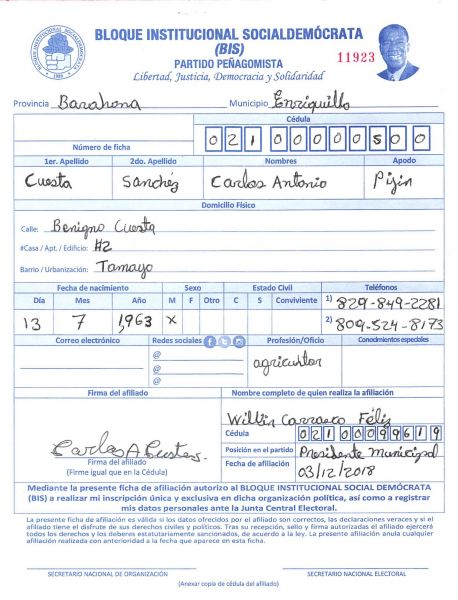 BLOQUE INSTITUCIONAL SOCIALDEMÓCRATA
(BIS)
PARTIDO PEÑAGOMISTA
11923
Libertad, Justicia, Democracia y Solidaridad
Provincia Barahona Municipio Enriquillo
Cédula
Número de ficha 02100000500
1er. Apellido 2do. Apellido Nombres Apodo
Cuesta Sanchéz Carlos Antonio Pijin
Domicilio Físico
Calle: Benigno Cuesta
#Casa / Apt. / Edificio: #2
Barrio / Urbanización: Tamayo
Fecha de nacimiento Sexo Estado Civil Teléfonos
Día Mes Año M F Otro C S Conviviente 1) 829-849-2281
13 7 1,963 x 2) 809-524-8173
Correo electrónico Redes sociales Profesión/Oficio Conocimientos especiales
@ agricultor
@
@
Firma del afiliado Nombre completo de quien realiza la afiliación
Willin Carrasco Féliz
Cédula 02100099619
Carlos A Cuestas.
Posición en el partido Presidente Municipal
Firma del afiliado
Fecha de afiliación 03/12/2018
(Firme igual que en la Cédula)
Mediante la presente ficha de afiliación autorizo al BLOQUE INSTITUCIONAL SOCIAL DEMÓCRATA
(BIS) a realizar mi inscripción única y exclusiva en dicha organización política, así como a registrar
mis datos personales ante la Junta Central Electoral.
La presente ficha de afiliación es válida si los datos ofrecidos por el afiliado son correctos, las declaraciones veraces y si el
afiliado tiene el disfrute de sus derechos civiles y políticos. Tras su recepción, sello y firma autorizadas el afiliado ejercerá
todos los derechos y los deberes estatutariamente sancionados, de acuerdo a la ley. La presente afiliación anula cualquier
afiliación realizada con anterioridad a la fecha que aparece en esta ficha.
SECRETARIO NACIONAL DE ORGANIZACIÓN SECRETARIO NACIONAL ELECTORAL
(Anexar copia de cédula del afiliado)